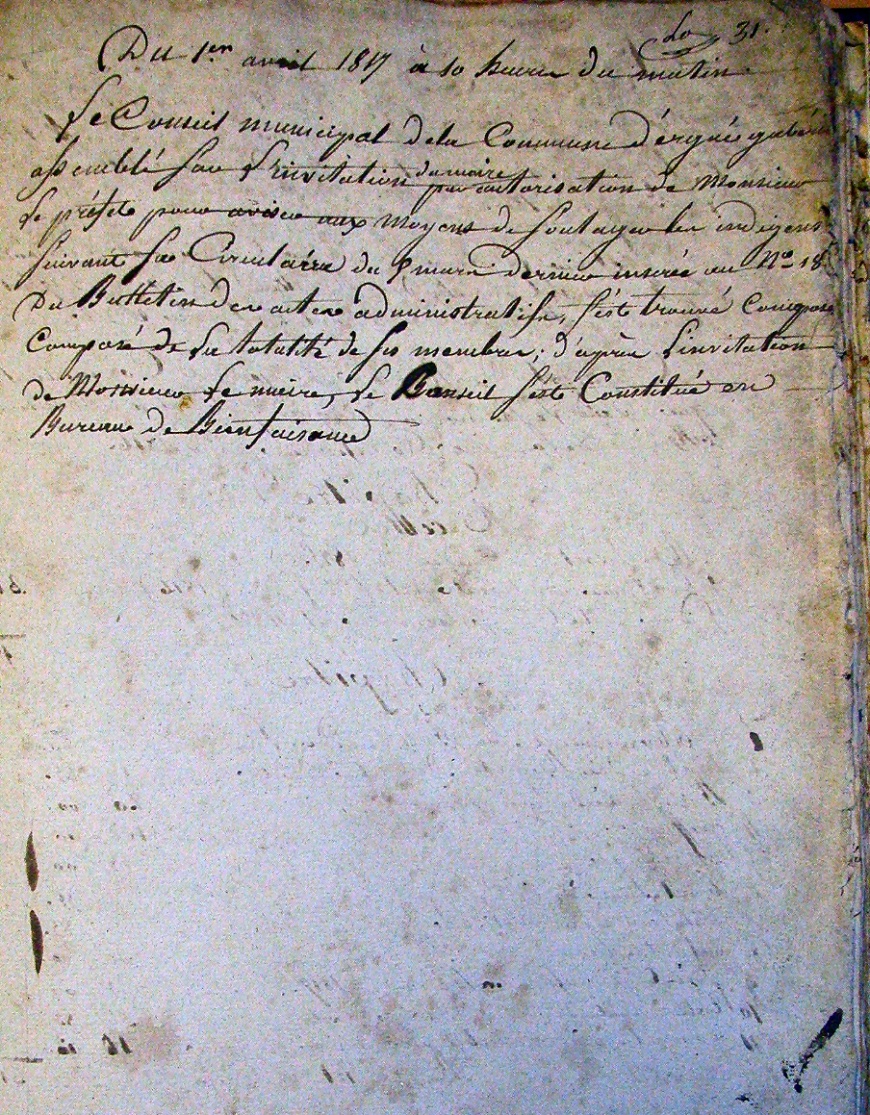 31.
Du 1er avril 1817 à 10 heures du matin
Le Conseil municipal de la Commune d'ergué gabéric
assemblé sur l'invitation du maire par autorisation de Monsieur
Le préfet pour aviser aux Moyens de soulager les indigens
suivant sa Circulaire du 8 mars dernier inserée au No 18
Du Bulletin des actes administratifs, s'est trouvé Composé
Composé de La totalité de ses membres; d'après l'invitation
de Monsieur Le maire, Le Conseil s'est Constitué en
Bureau de Bienfaisance